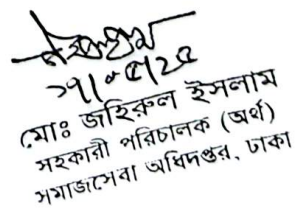 ২৭/০৫/২৫
মোঃ জহিরুল ইসলাম
সহকারী পরিচালক (অর্থ)
সমাজসেবা অধিদপ্তর, ঢাকা